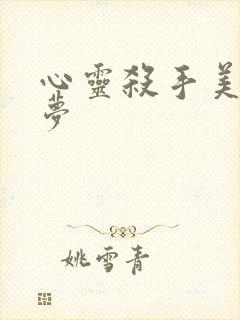 心靈殺手美
夢
姚雪青